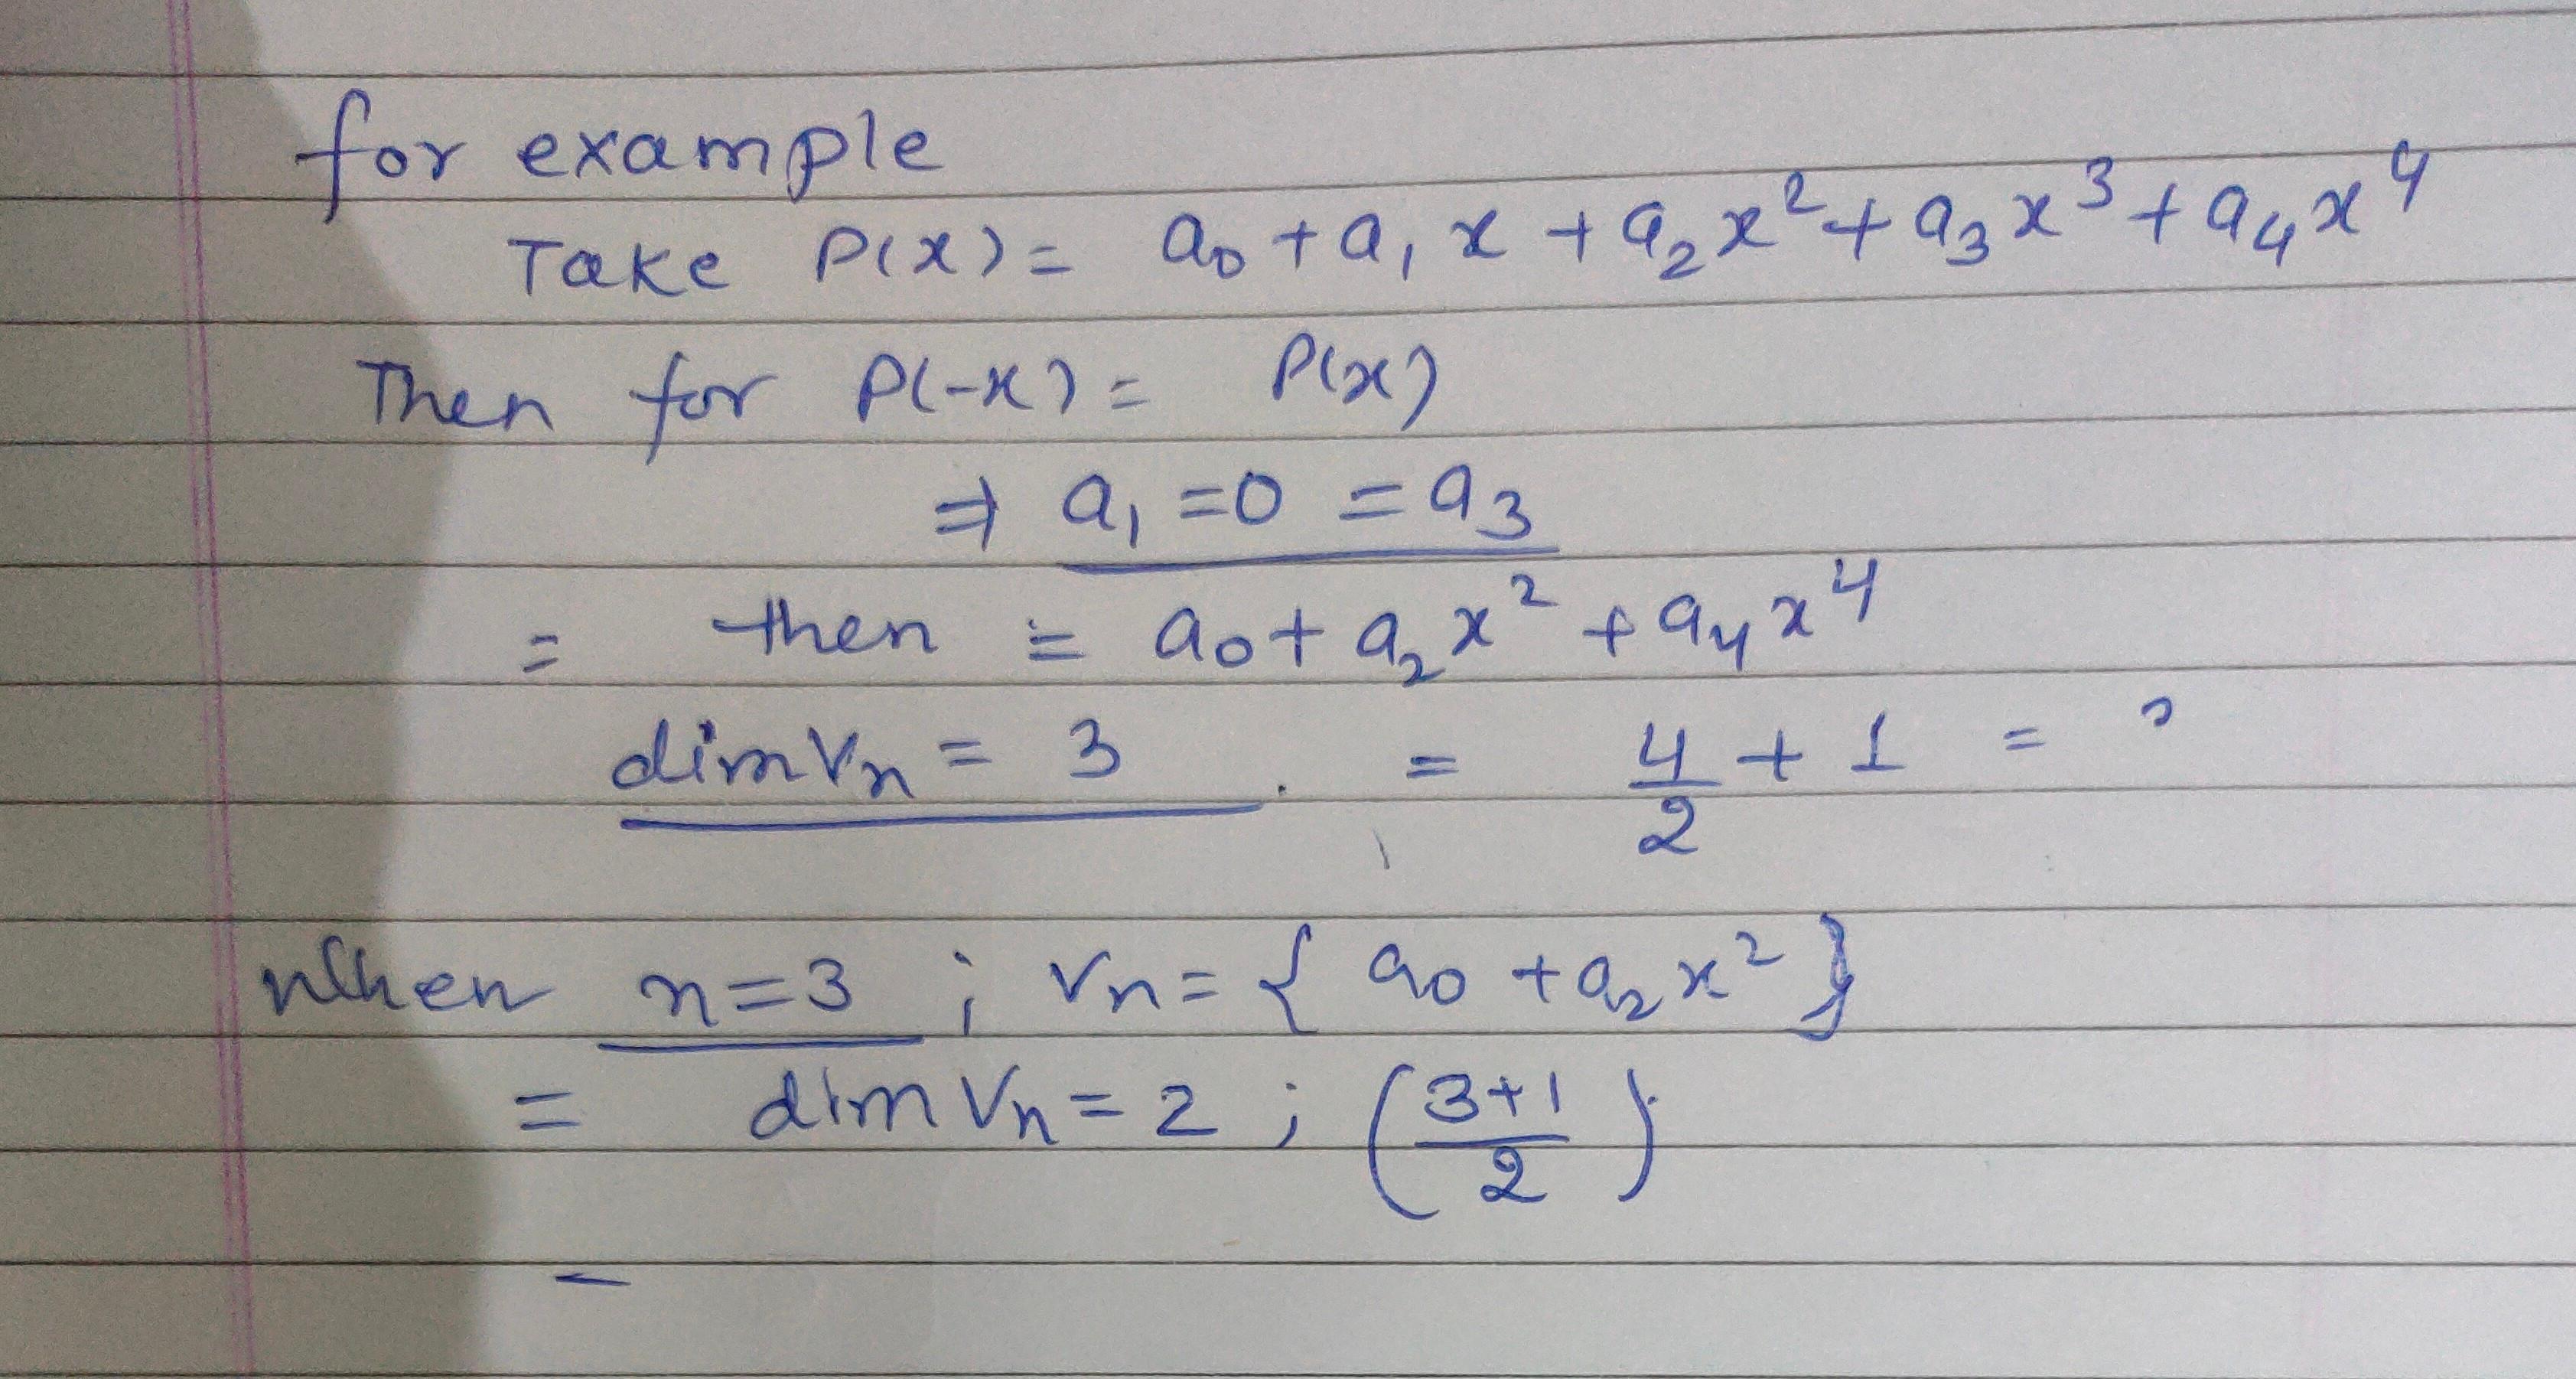 for example
Take P(x) = a₀ + a₁x + a₂x² + a₃x³ + a₄x⁴
Then for P(-x) = P(x)
⇒ a₁ = 0 = a₃
= then = a₀ + a₂x² + a₄x⁴
dim Vn = 3 . = 4/2 + 1 =
When n=3 ; Vn = { a₀ + a₂x² }
= dim Vn = 2 ; (3+1/2)